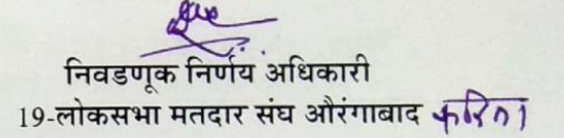 निवडणूक निर्णय अधिकारी
19-लोकसभा मतदार संघ औरंगाबाद करिता